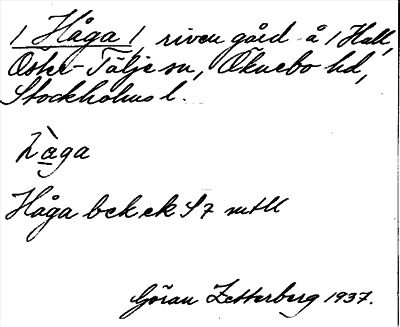 / Håga / riven gård å / Hall,
Öster-Tälje sn, Öknebo hd,
Stockholms l.
hàga
Håga bck ek 57 mtll
Göran Zetterberg 1937.